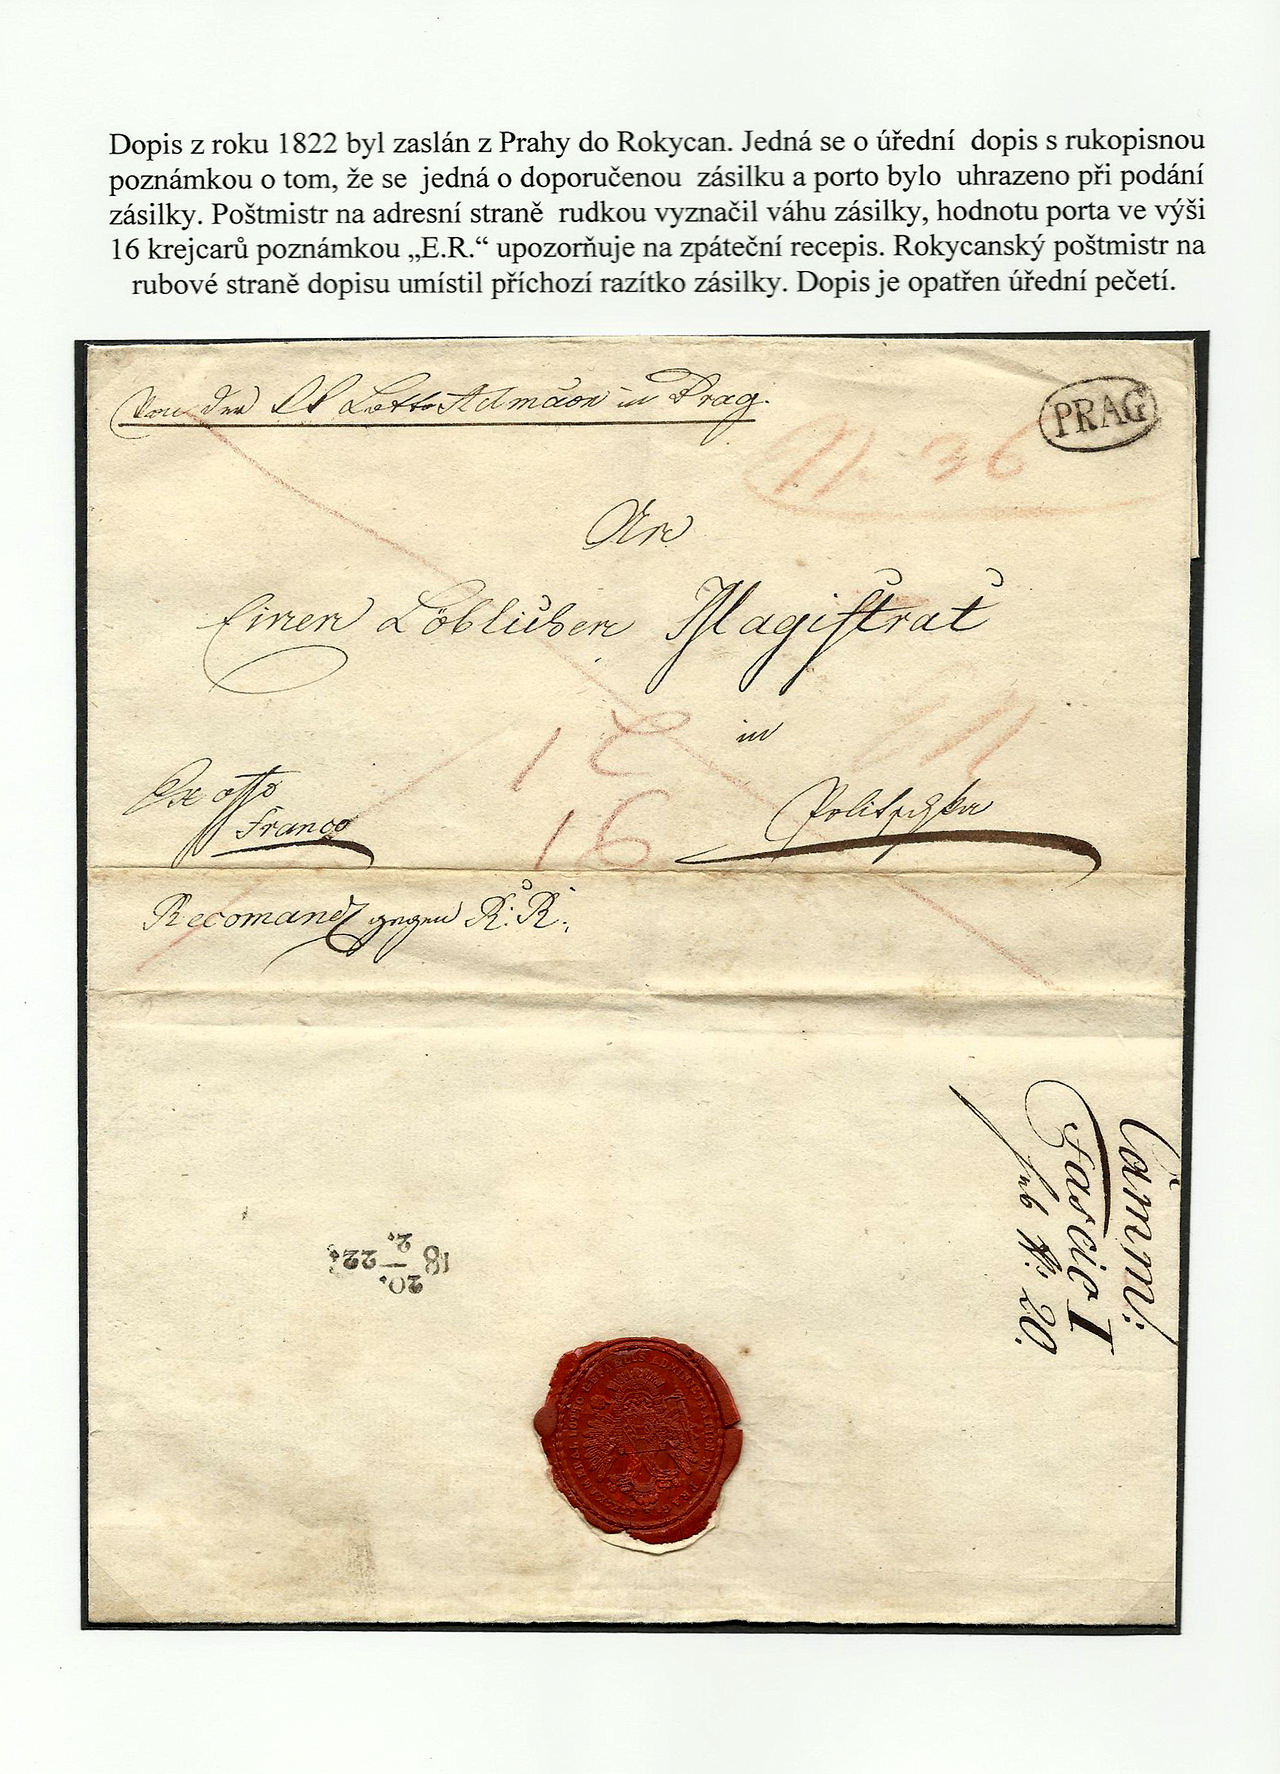 Dopis z roku 1822 byl zaslán z Prahy do Rokycan. Jedná se o úřední dopis s rukopisnou
poznámkou o tom, že se jedná o doporučenou zásilku a porto bylo uhrazeno při podání
zásilky. Poštmistr na adresní straně rudkou vyznačil váhu zásilky, hodnotu porta ve výši
16 krejcarů poznámkou „E.R.“ upozorňuje na zpáteční recepis. Rokycanský poštmistr na
rubové straně dopisu umístil příchozí razítko zásilky. Dopis je opatřen úřední pečetí.
Von der Lotto Admäon in Prag.
PRAG
N. 36
An
Einen Löblichen Magistrat
in
Ex offo
Franco
16
Recomand gegen R: R:
Camm:
Fascic I
sub N: 20.
20.
18 — 22.
2.
ADMINISTRATION IN PRAG